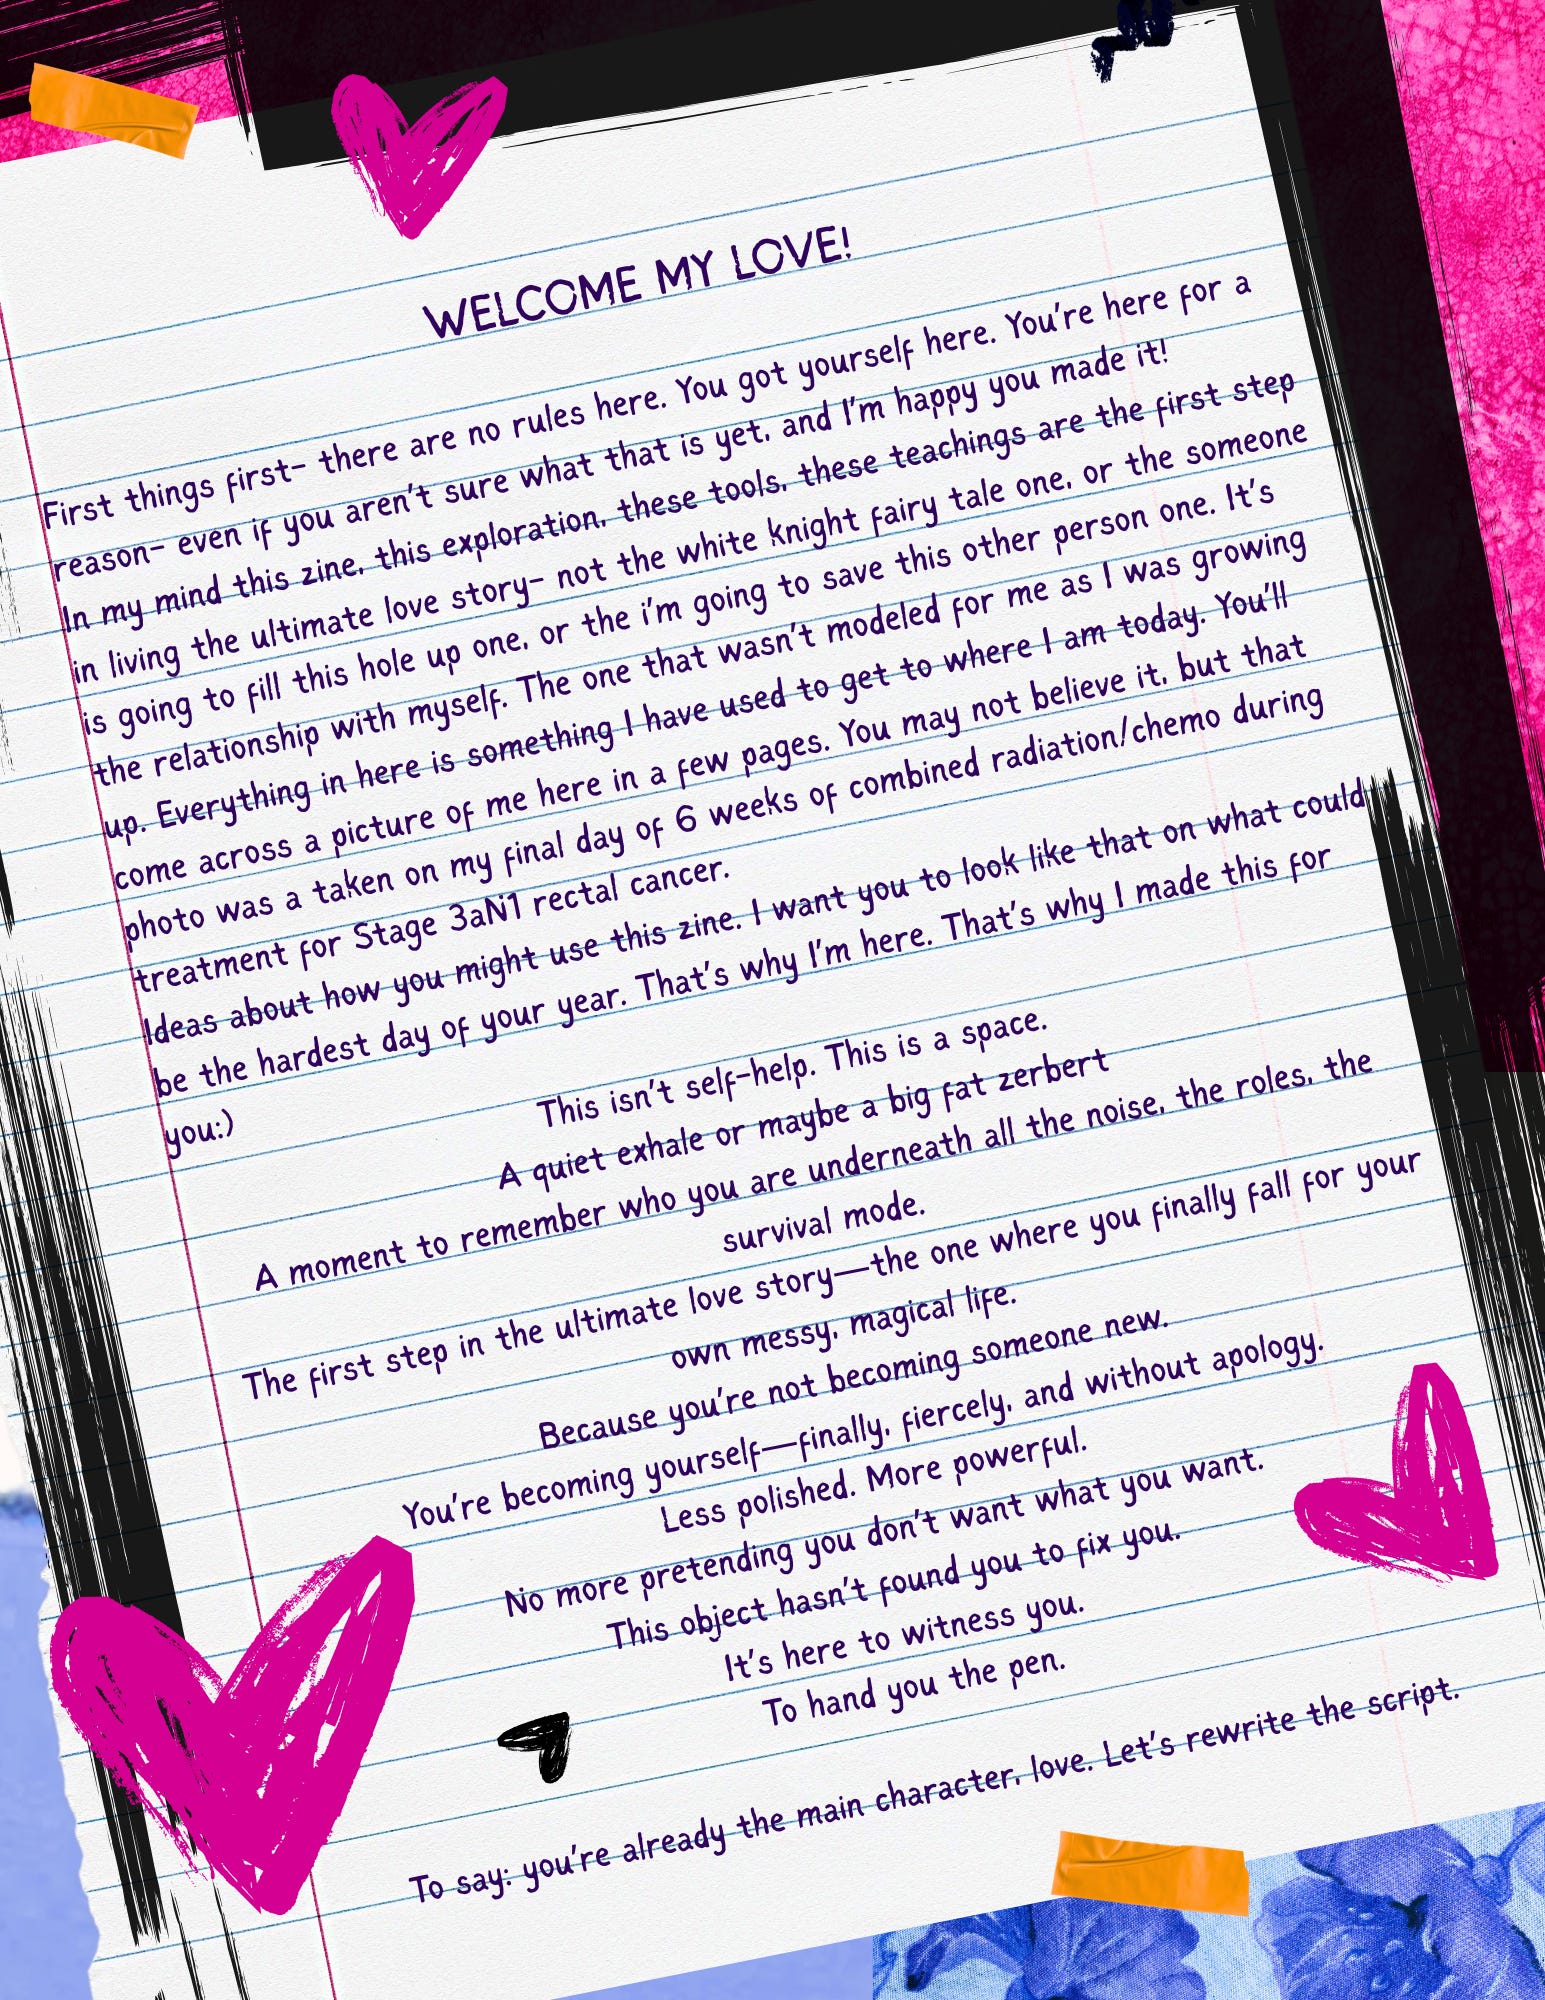 WELCOME MY LOVE!
First things first- there are no rules here. You got yourself here. You're here for a
reason- even if you aren't sure what that is yet, and I'm happy you made it!
In my mind this zine, this exploration, these tools, these teachings are the first step
in living the ultimate love story- not the white knight fairy tale one, or the someone
is going to fill this hole up one, or the i'm going to save this other person one. It's
the relationship with myself. The one that wasn't modeled for me as I was growing
up. Everything in here is something I have used to get to where I am today. You'll
come across a picture of me here in a few pages. You may not believe it, but that
photo was a taken on my final day of 6 weeks of combined radiation/chemo during
treatment for Stage 3aN1 rectal cancer.
Ideas about how you might use this zine. I want you to look like that on what could
be the hardest day of your year. That's why I'm here. That's why I made this for
you:)
This isn't self-help. This is a space.
A quiet exhale or maybe a big fat zerbert
A moment to remember who you are underneath all the noise, the roles, the
survival mode.
The first step in the ultimate love story—the one where you finally fall for your
own messy, magical life.
Because you're not becoming someone new.
You're becoming yourself—finally, fiercely, and without apology.
Less polished. More powerful.
No more pretending you don't want what you want.
This object hasn't found you to fix you.
It's here to witness you.
To hand you the pen.
To say: you're already the main character, love. Let's rewrite the script.